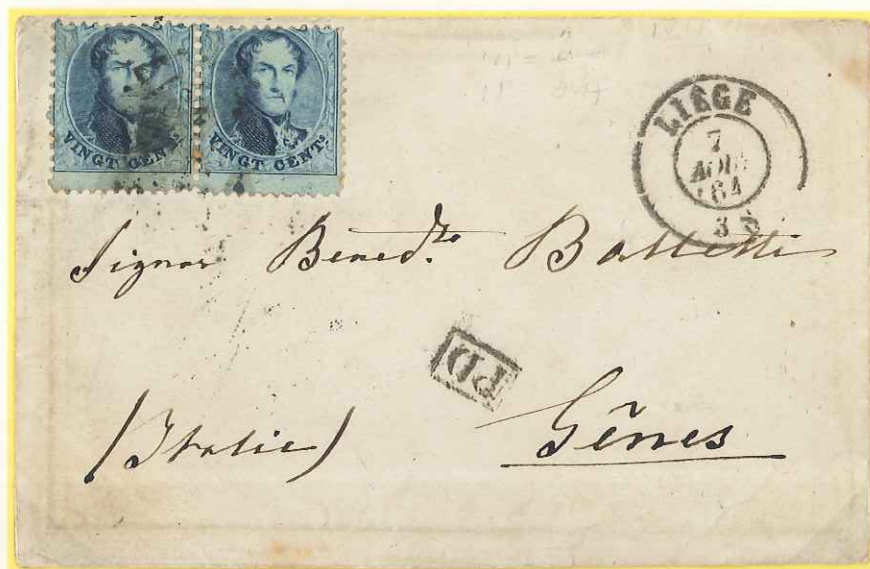 VINGT CENTS VINGT CENTS
LIÉGE
7
AOUT
64
3 S
Signor Bened.to
PD
(Italie) Gênes